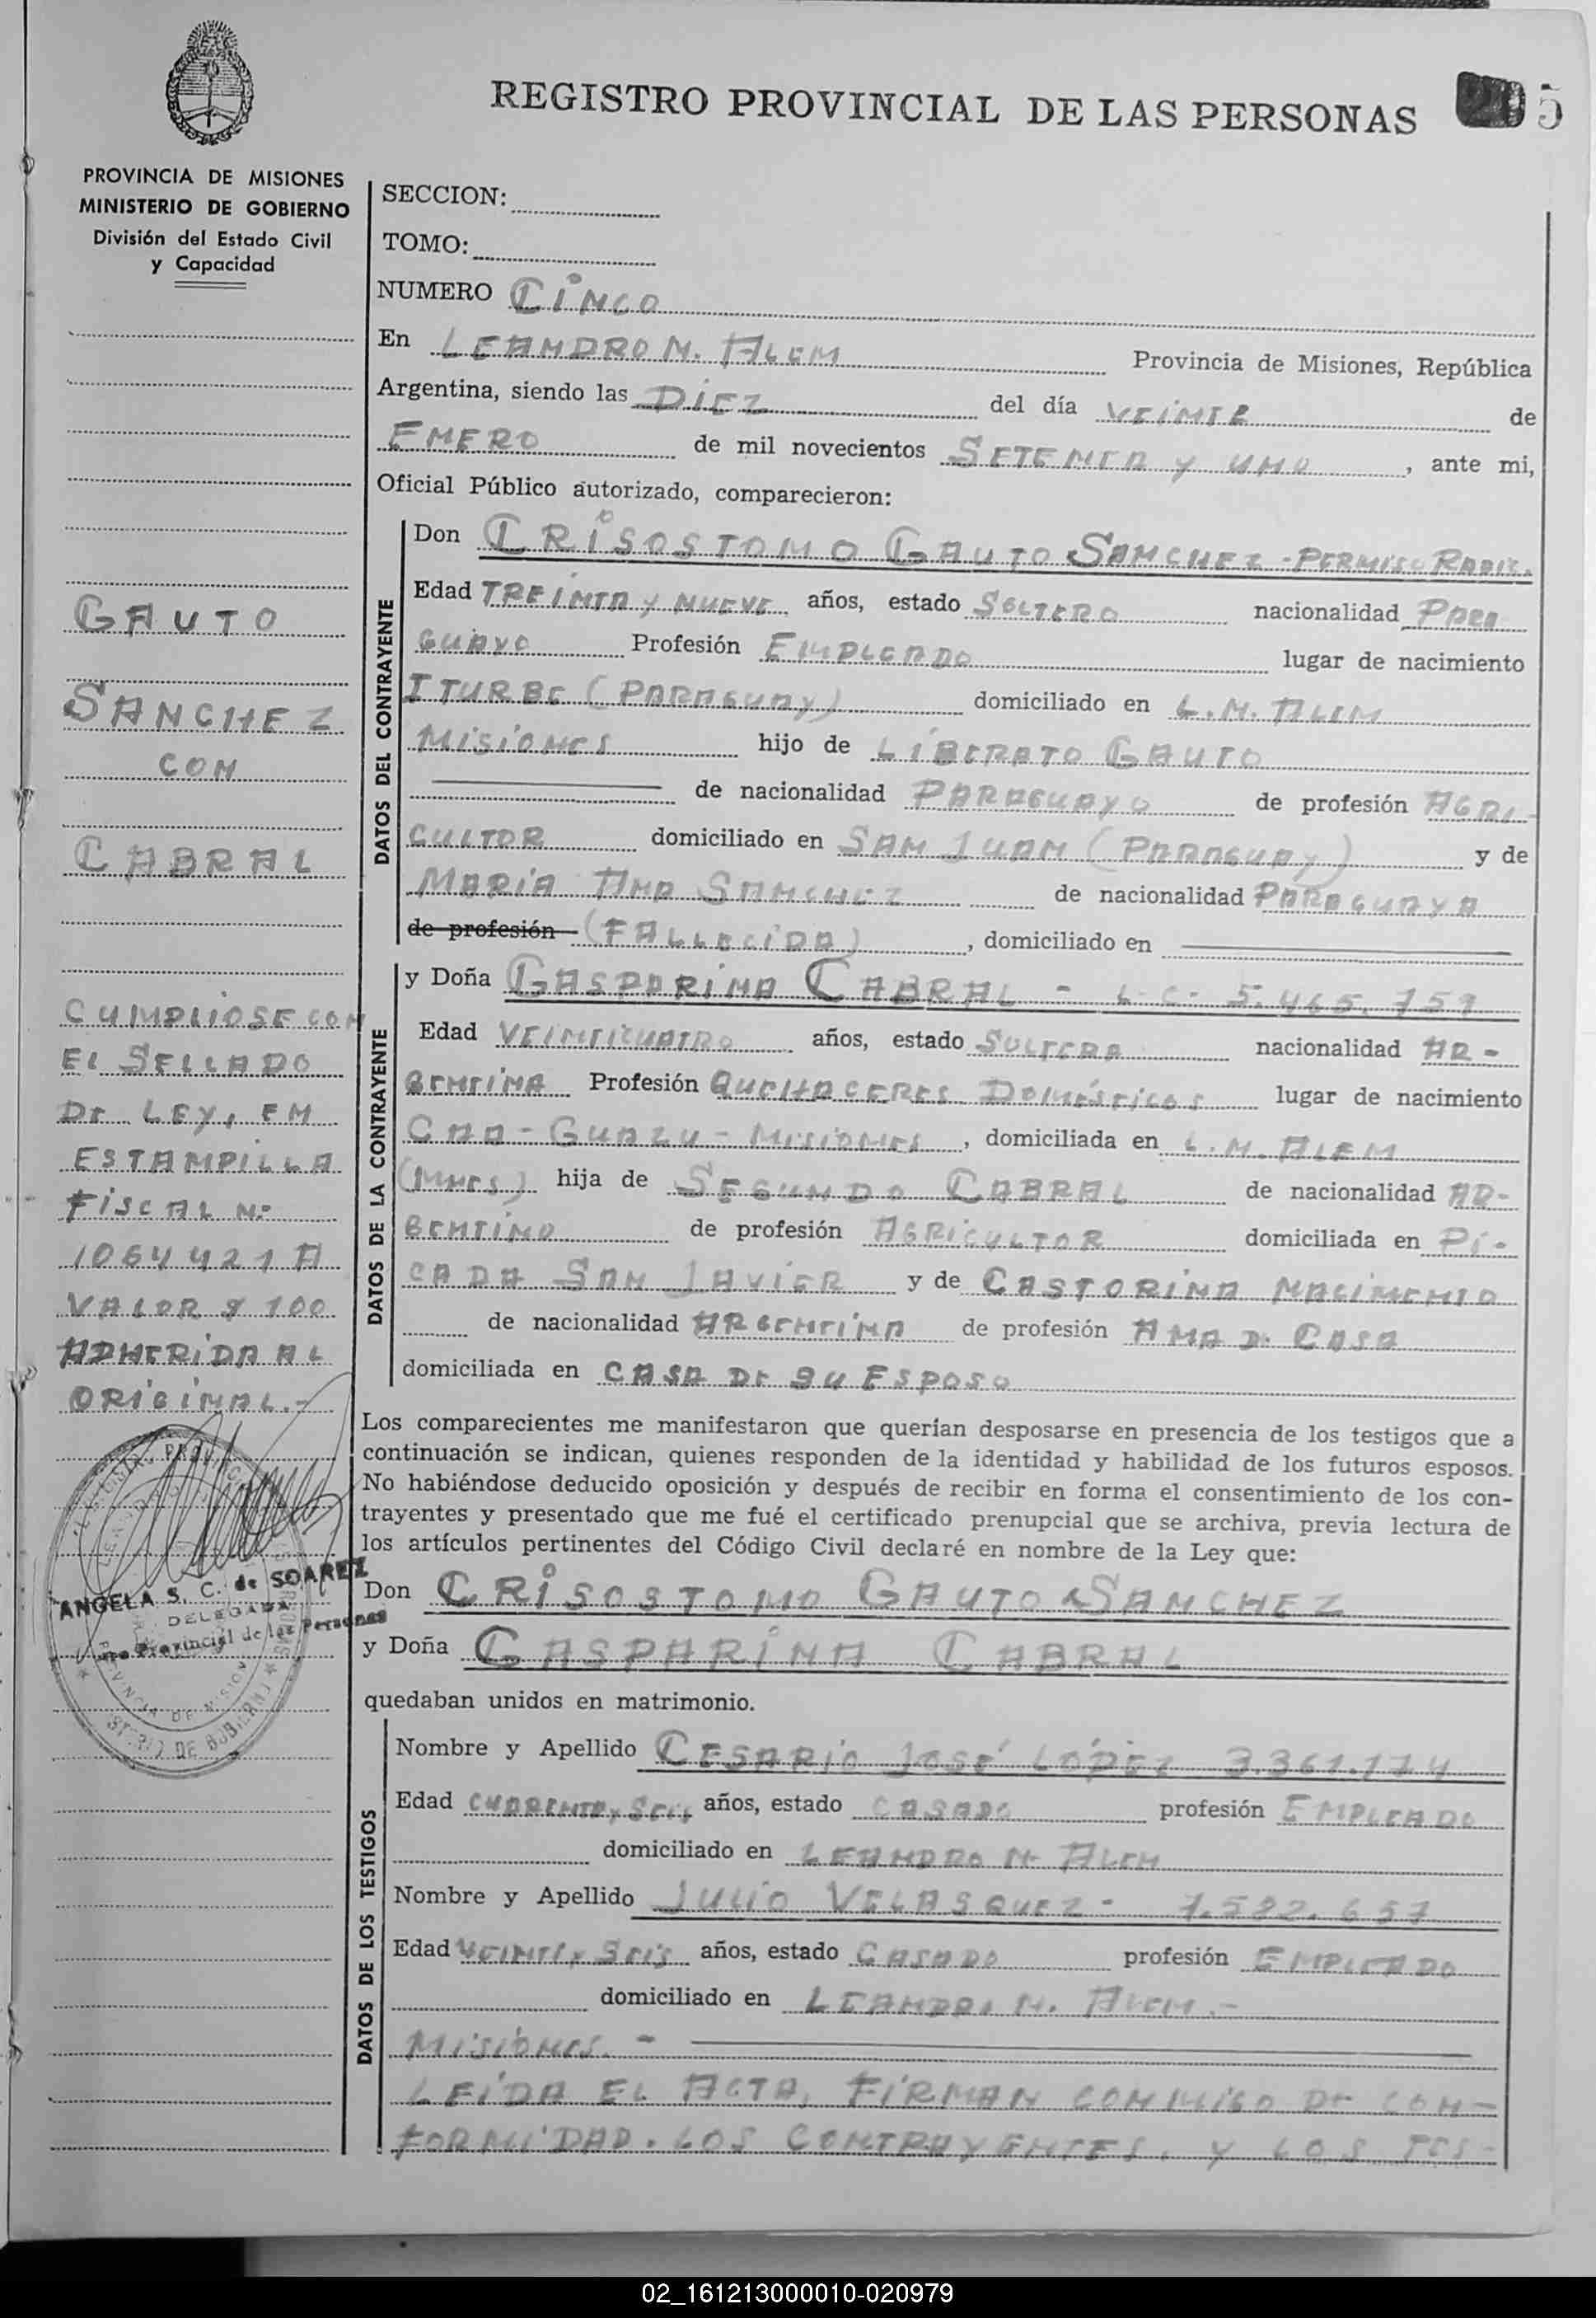 REGISTRO PROVINCIAL DE LAS PERSONAS 5
PROVINCIA DE MISIONES
MINISTERIO DE GOBIERNO
División del Estado Civil
y Capacidad
GAUTO
SANCHEZ
CON
CABRAL
CUMPLIOSE CON
EL SELLADO
DE LEY, EN
ESTAMPILLA
FISCAL Nº
1064421 A
VALOR $ 100
ADHERIDA AL
ORIGINAL.-
ANGELA S. C. de SOAREZ
DELEGADA
Provincial de las Personas
SECCION:
TOMO:
NUMERO CINCO
En LEANDRO N. ALEM Provincia de Misiones, República
Argentina, siendo las DIEZ del día VEINTE de
ENERO de mil novecientos SETENTA Y UNO, ante mi,
Oficial Público autorizado, comparecieron:
DATOS DEL CONTRAYENTE
Don CRISOSTOMO GAUTO SANCHEZ - PERMISO RADIC.
Edad TREINTA Y NUEVE años, estado SOLTERO nacionalidad PARA
GUAYO Profesión EMPLEADO lugar de nacimiento
ITURBE (PARAGUAY) domiciliado en L.N. ALEM
MISIONES hijo de LIBERATO GAUTO
de nacionalidad PARAGUAYO de profesión AGRI-
CULTOR domiciliado en SAN JUAN (PARAGUAY) y de
MARIA ANA SANCHEZ de nacionalidad PARAGUAYA
de profesión (FALLECIDA), domiciliado en
DATOS DE LA CONTRAYENTE
y Doña GASPARINA CABRAL - L.C. 5.465.759
Edad VEINTICUATRO años, estado SOLTERA nacionalidad AR-
GENTINA Profesión QUEHACERES DOMÉSTICOS lugar de nacimiento
CAA-GUAZU-MISIONES, domiciliada en L.N. ALEM
(MNES) hija de SEGUNDO CABRAL de nacionalidad AR-
GENTINO de profesión AGRICULTOR domiciliada en PI-
CADA SAN JAVIER y de CASTORINA NACIMENTO
de nacionalidad ARGENTINA de profesión AMA DE CASA
domiciliada en CASA DE SU ESPOSO
Los comparecientes me manifestaron que querían desposarse en presencia de los testigos que a
continuación se indican, quienes responden de la identidad y habilidad de los futuros esposos.
No habiéndose deducido oposición y después de recibir en forma el consentimiento de los con-
trayentes y presentado que me fué el certificado prenupcial que se archiva, previa lectura de
los artículos pertinentes del Código Civil declaré en nombre de la Ley que:
Don CRISOSTOMO GAUTO SANCHEZ
y Doña GASPARINA CABRAL
quedaban unidos en matrimonio.
DATOS DE LOS TESTIGOS
Nombre y Apellido CESARIO JOSÉ LÓPEZ 3.361.174
Edad CUARENTA Y SEIS años, estado CASADO profesión EMPLEADO
domiciliado en LEANDRO N. ALEM
Nombre y Apellido JULIO VELASQUEZ - 7.582.657
Edad VEINTE Y SEIS años, estado CASADO profesión EMPLEADO
domiciliado en LEANDRO N. ALEM.-
MISIONES.-
LEIDA EL ACTA, FIRMAN CONMIGO DE CON-
FORMIDAD. LOS CONTRAYENTES, Y LOS TES-
02_161213000010-020979